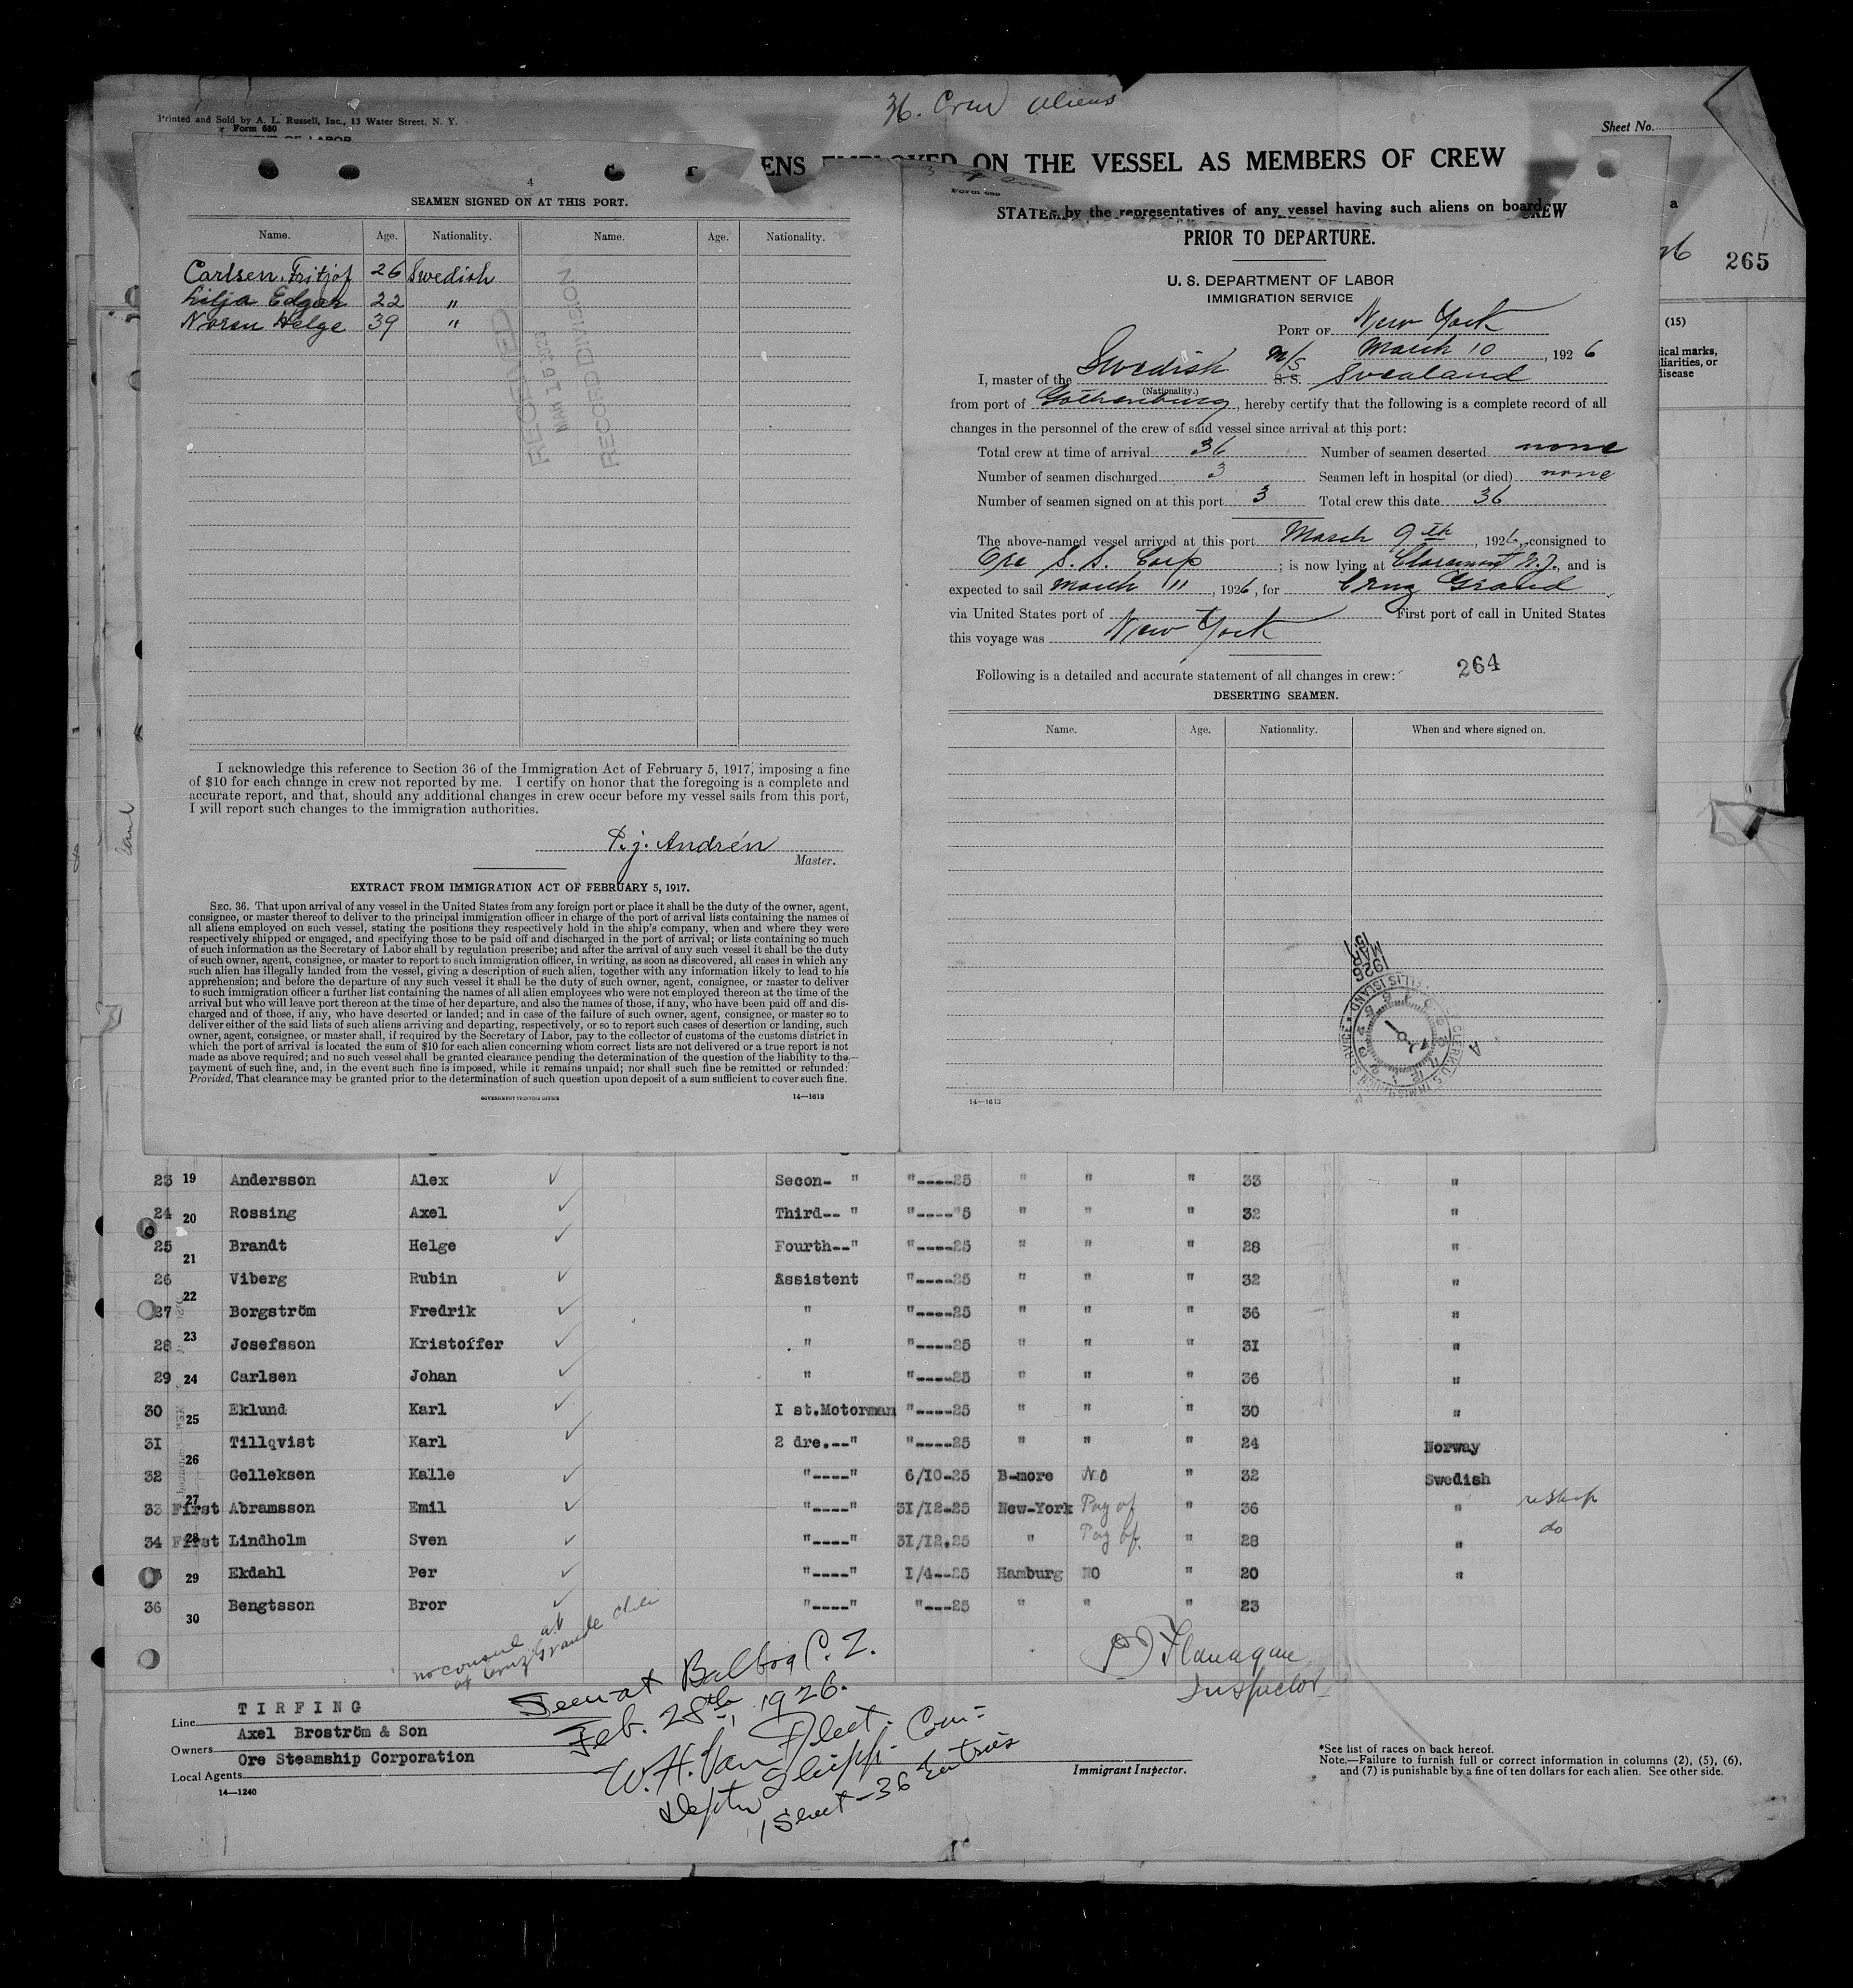 36. Crew Aliens
Printed and Sold by A. L. Russell, Inc., 13 Water Street, N. Y.
Form 680
Sheet No.
ENS EMPLOYED ON THE VESSEL AS MEMBERS OF CREW
by the representatives of any vessel having such aliens on board
265
(15)
ical marks,
liarities, or
disease
4
SEAMEN SIGNED ON AT THIS PORT.
Name. Age. Nationality. Name. Age. Nationality.
Carlsen, Fritjof 26 Swedish
Lilja Edgar 22 "
Noren Helge 39 "
RECEIVED
MAR 16 1926
RECORD DIVISION
I acknowledge this reference to Section 36 of the Immigration Act of February 5, 1917, imposing a fine
of $10 for each change in crew not reported by me. I certify on honor that the foregoing is a complete and
accurate report, and that, should any additional changes in crew occur before my vessel sails from this port,
I will report such changes to the immigration authorities.
P. j. Andrén
Master.
EXTRACT FROM IMMIGRATION ACT OF FEBRUARY 5, 1917.
SEC. 36. That upon arrival of any vessel in the United States from any foreign port or place it shall be the duty of the owner, agent,
consignee, or master thereof to deliver to the principal immigration officer in charge of the port of arrival lists containing the names of
all aliens employed on such vessel, stating the positions they respectively hold in the ship's company, when and where they were
respectively shipped or engaged, and specifying those to be paid off and discharged in the port of arrival; or lists containing so much
of such information as the Secretary of Labor shall by regulation prescribe; and after the arrival of any such vessel it shall be the duty
of such owner, agent, consignee, or master to report to such immigration officer, in writing, as soon as discovered, all cases in which any
such alien has illegally landed from the vessel, giving a description of such alien, together with any information likely to lead to his
apprehension; and before the departure of any such vessel it shall be the duty of such owner, agent, consignee, or master to deliver
to such immigration officer a further list containing the names of all alien employees who were not employed thereon at the time of the
arrival but who will leave port thereon at the time of her departure, and also the names of those, if any, who have been paid off and dis-
charged and of those, if any, who have deserted or landed; and in case of the failure of such owner, agent, consignee, or master so to
deliver either of the said lists of such aliens arriving and departing, respectively, or so to report such cases of desertion or landing, such
owner, agent, consignee, or master shall, if required by the Secretary of Labor, pay to the collector of customs of the customs district in
which the port of arrival is located the sum of $10 for each alien concerning whom correct lists are not delivered or a true report is not
made as above required; and no such vessel shall be granted clearance pending the determination of the question of the liability to the
payment of such fine, and, in the event such fine is imposed, while it remains unpaid; nor shall such fine be remitted or refunded:
Provided, That clearance may be granted prior to the determination of such question upon deposit of a sum sufficient to cover such fine.
GOVERNMENT PRINTING OFFICE 14—1613
Form 689
CREW
PRIOR TO DEPARTURE.
U. S. DEPARTMENT OF LABOR
IMMIGRATION SERVICE
PORT OF New York
March 10, 1926
I, master of the Swedish M/S S. S. Svealand
(Nationality.)
from port of Gothenburg, hereby certify that the following is a complete record of all
changes in the personnel of the crew of said vessel since arrival at this port:
Total crew at time of arrival 36 Number of seamen deserted none
Number of seamen discharged 3 Seamen left in hospital (or died) none
Number of seamen signed on at this port 3 Total crew this date 36
The above-named vessel arrived at this port March 9th, 1926, consigned to
Ore S. S. Corp; is now lying at Claremont N.J., and is
expected to sail March 11, 1926, for Cruz Grand
via United States port of First port of call in United States
this voyage was New York
Following is a detailed and accurate statement of all changes in crew: 264
DESERTING SEAMEN.
Name. Age. Nationality. When and where signed on.
1926 MAR 15
14—1613
23 19 Andersson Alex Secon- " "----25 " " " 33 "
24 20 Rossing Axel Third-- " "----"5 " " " 32 "
25 21 Brandt Helge Fourth--" "----25 " " " 28 "
26 22 Viberg Rubin Assistent "----25 " " " 32 "
27 Borgström Fredrik " "----25 " " " 36 "
28 23 Josefsson Kristoffer " "----25 " " " 31 "
29 24 Carlsen Johan " "----25 " " " 36 "
30 25 Eklund Karl I st.Motorman "----25 " " " 30 "
31 26 Tillqvist Karl 2 dre.--" "----25 " " " 24 Norway
32 Gelleksen Kalle "----" 6/10-25 B-more NO " 32 Swedish
33 27 First Abramsson Emil "----" 31/12-25 New-York Pay of " 36 " reship
34 28 First Lindholm Sven "----" 31/12.25 " Pay of. " 28 " do
29 Ekdahl Per "----" 1/4--25 Hamburg NO " 20 "
36 30 Bengtsson Bror "----" "---25 " " " 23
no consul at
Cruz Grande Chile
P J Flanagan
Inspector
Seen at Balboa C. Z.
Feb. 28th, 1926.
W. H. Van Fleet.
Deputy Shipp. Com:
1 Sheet - 36 Entries
Line TIRFING
Owners Axel Broström & Son
Local Agents Ore Steamship Corporation
14—1240
Immigrant Inspector.
*See list of races on back hereof.
Note.—Failure to furnish full or correct information in columns (2), (5), (6),
and (7) is punishable by a fine of ten dollars for each alien. See other side.